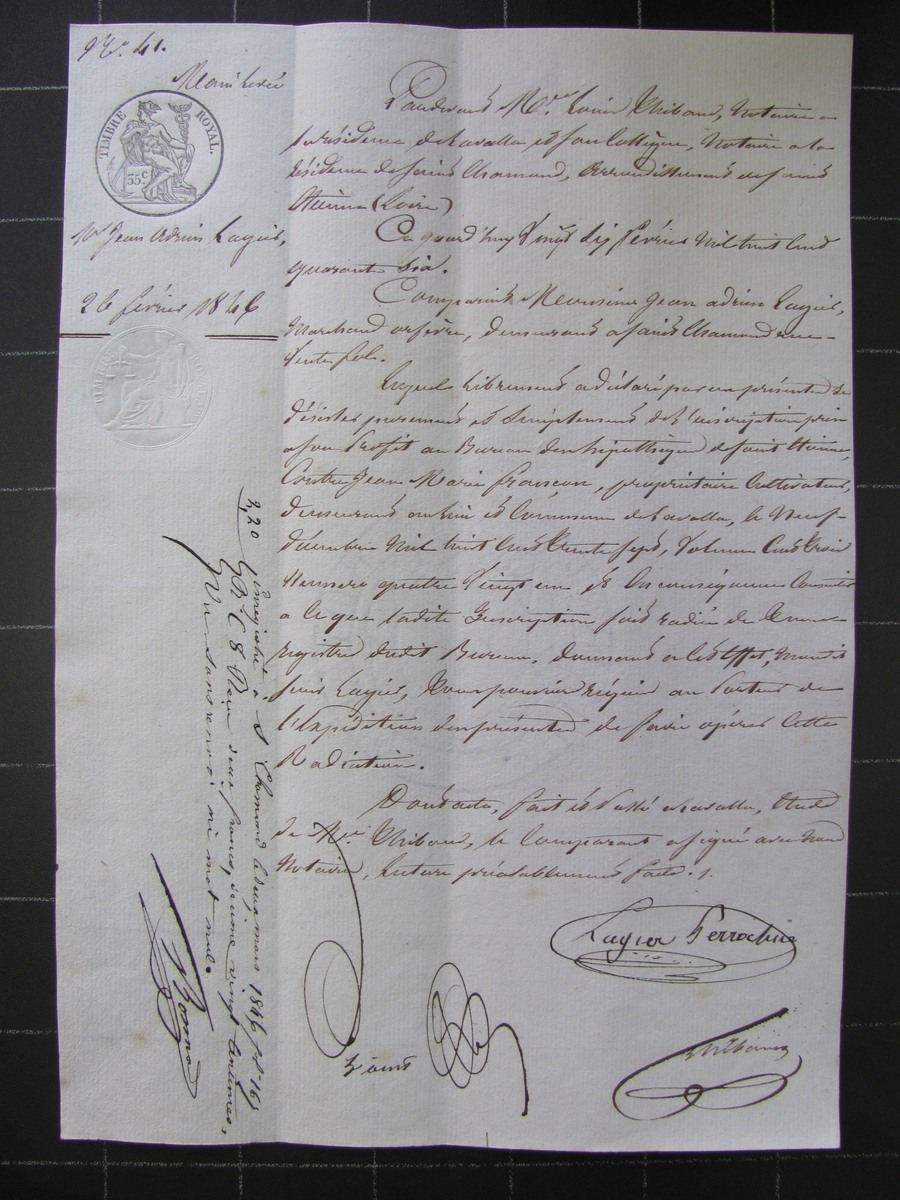 No. 41.
Main Levée
TIMBRE ROYAL.
35c
Mr. Jean Adrien Laguis,
26 février 1846
Pardevant Me. Louis Thibaud, Notaire en
la résidence de Lavalla et son Collègue, Notaire à la
résidence de Saint Chamond, arrondissement de Saint
Etienne (Loire)
Ce jourd'huy Vingt Six Février Mil huit Cent
quarante Six.
Comparait Monsieur Jean adrien
Marchand orfèvre, demeurant a Saint Chamond rue
Lequel librement a déclaré par ces présentes se
désister purement et Simplement de l'inscription prise
a son Profit au Bureau des hipothèques de Saint Etienne,
Contre Jean Marie françon, propriétaire Cultivateur,
demeurant au lieu et Commune de Lavalla, le Neuf
décembre Mil huit Cent trente Sept, Volume Cent trois
Numéro quatre Vingt un et En conséquence Consentir
a ce que ladite Inscription soit radiée de tous
registres dudit Bureau, donnant a cet Effet, mondit
Sieur, tous pouvoirs requis au Porteur de
l'Expédition des présentes de faire opérer Cette
Radiation.
Dont acte, fait et Passé a Lavalla, Etude
de Me. Thibaud, le Comparant a signé avec Nous
Notaire, lecture préalablement faite.
Perrochia
Thibaud
Enregistré à St Chamond le deux mars 1846, fo. 161
Ro C 8 Reçu deux francs, décime vingt Centimes,
Vu sans renvoi ni mot nul.
2,20